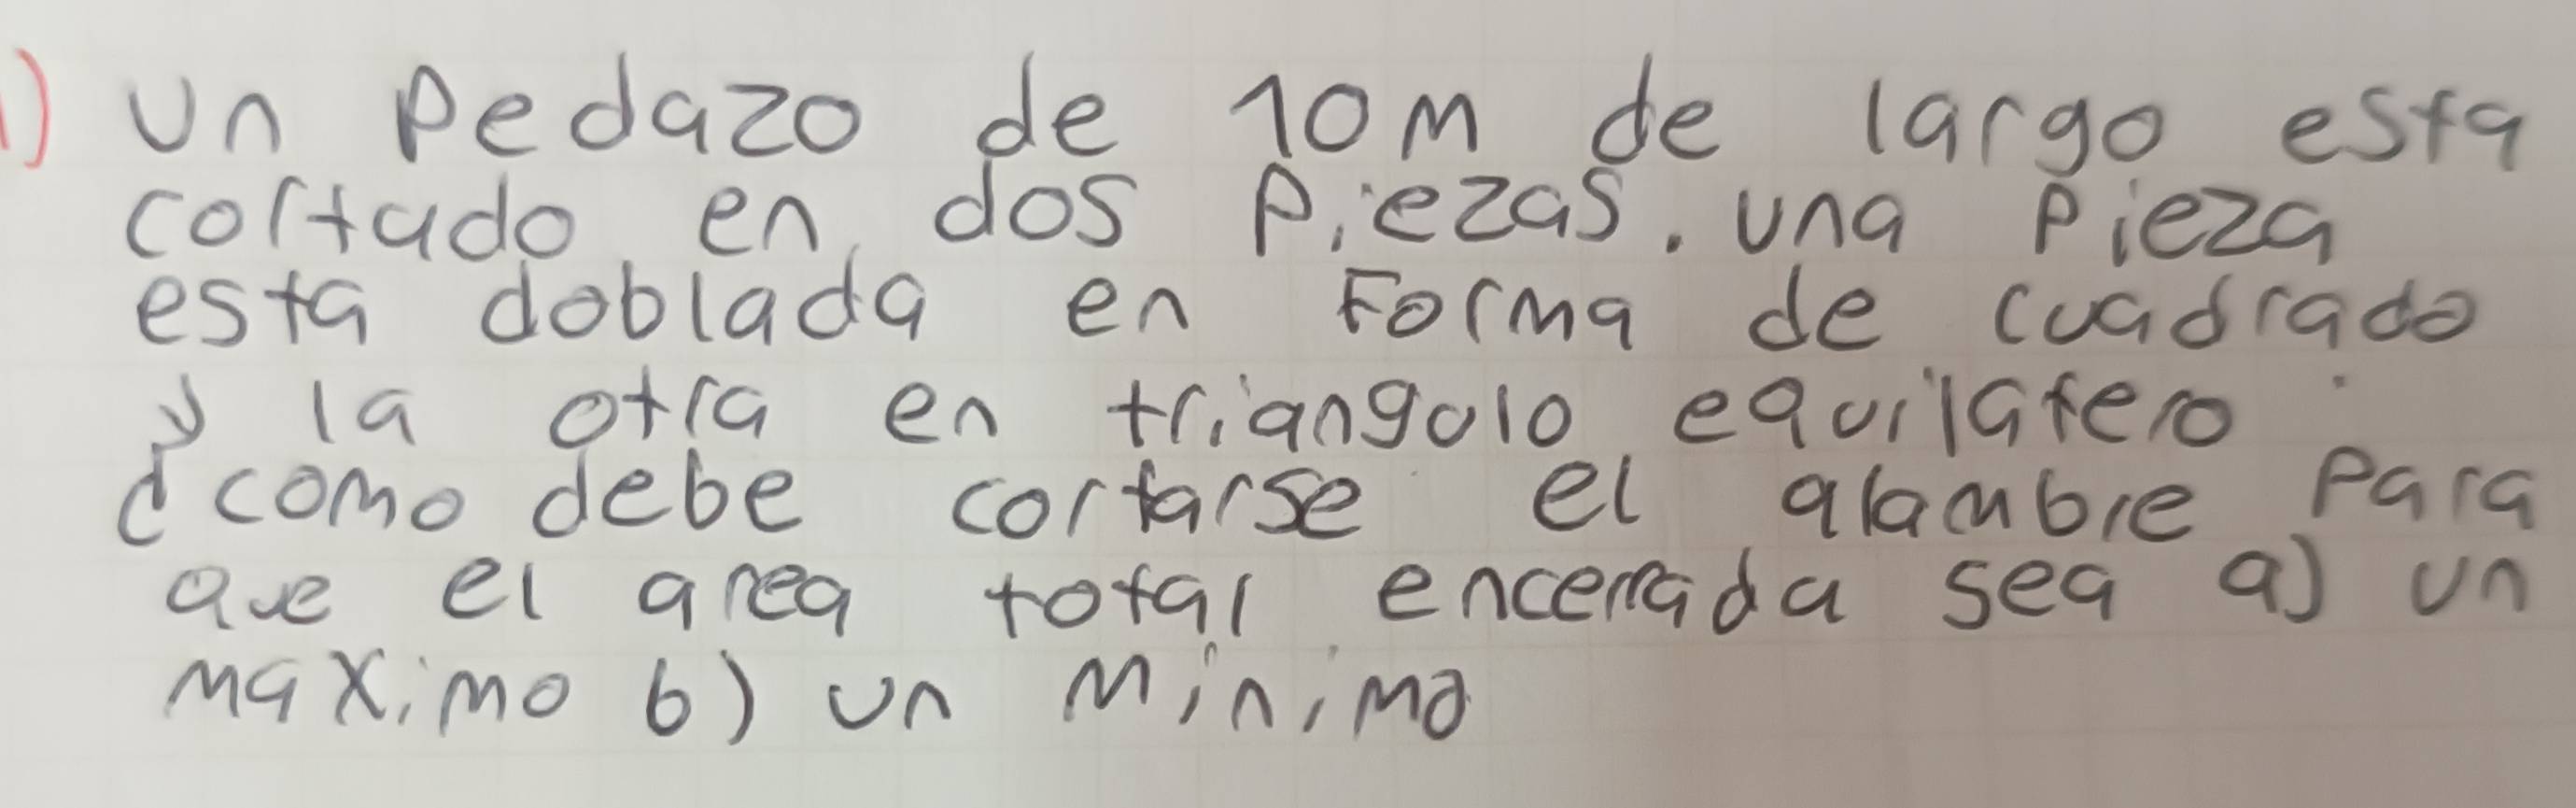 1) Un Pedazo de 10m de largo esta
cortado en dos Piezas. una Pieza
esta doblada en Forma de cuadrado
y la otra en triangulo equilatero.
¿como debe cortarse el alambre Para
que el area total encerrada sea a) un
maximo b) un minimo